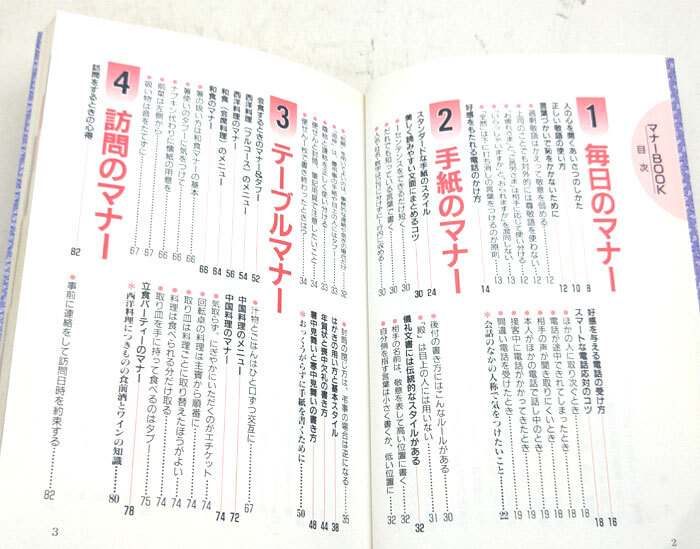 マナーBOOK
目次
1 毎日のマナー
人の心を開くあいさつのしかた 9
正しい敬語の使い方 10
言葉づかいで恥をかかないために 12
●過剰敬語はかえって敬意を弱める 12
●上司のことでも対外的には尊敬語を使わない 12
●“お疲れさま”と“ご苦労さま”は相手に応じて使い分ける
●“いらっしゃいますか”と“おられますか”を混同しない
●“全然”は下に打ち消しの言葉をつけるのが原則
好感をもたれる電話のかけ方 14
好感を与える電話の受け方 16
スマートな電話応対のコツ 18
●ほかの人に取り次ぐとき 18
●電話が途中できれてしまったとき 18
●相手の声が聞き取りにくいとき 18
●本人がほかの電話で話し中のとき 19
●接客中に電話がかかってきたとき 19
●間違い電話を受けたとき 19
*会話のなかの人称で気をつけたいこと 22
2 手紙のマナー
スタンダードな手紙のスタイル 24
美しく読みやすい文面にまとめるコツ 30
●一センテンスをできるだけ短く 30
●だれでも知っている言葉で書く 30
●後付の書き方にはこんなルールがある 30
●「殿」は目上の人には用いない 31
儀礼文書には伝統的なスタイルがある 32
●相手の名前は、敬意を表して高い位置に書く
●自分側を指す言葉は小さく書くか、低い位置に 32
●尊称と謙称を正しく使い分ける 33
●便せんと封筒、筆記用具で注意したいこと 34
●便せん一枚で書き終わったときは？ 34
●封筒の閉じ方は、弔事の場合は逆になる 35
はがきの用い方と基本スタイル 38
年賀状と喪中欠礼の書き方 44
暑中見舞いと寒中見舞いの書き方 48
*おっくうがらずに手紙を書くために 50
3 テーブルマナー
会食するときのマナー&タブー 52
西洋料理（フルコース）のメニュー 54
西洋料理のマナー 56
和食（会席料理）のメニュー 64
和食のマナー 66
●箸の扱い方は和食マナーの基本 66
●箸使いのタブーに気をつけて 66
●ナプキン代わりに懐紙の用意を
●前菜は左側から 67
●吸い物は音をたてずに 67
●汁物とごはんはひと口ずつ交互に 67
中国料理のメニュー 72
中国料理のマナー 74
●気取らず、にぎやかにいただくのがエチケット
●回転卓の料理は主賓から順番に 74
●取り皿は料理ごとに取り替えたほうがよい 74
●料理は食べられる分だけ取る 74
●取り皿を手に持って食べるのはタブー 75
立食パーティーのマナー 78
*西洋料理につきものの食前酒とワインの知識 80
4 訪問のマナー
訪問をするときの心得 82
●事前に連絡をして訪問日時を約束する 82
2
3